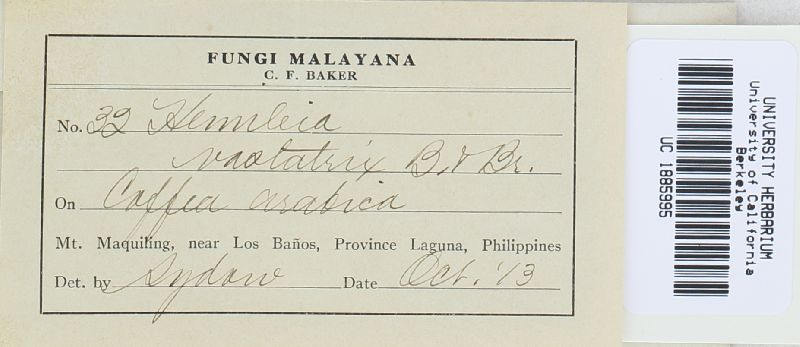 FUNGI MALAYANA
C. F. BAKER
No. 32 Hemileia
vastatrix B. & Br.
On Coffea arabica
Mt. Maquiling, near Los Baños, Province Laguna, Philippines
Det. by Sydow Date Oct. '13
UNIVERSITY HERBARIUM
University of California
Berkeley
UC 1885985